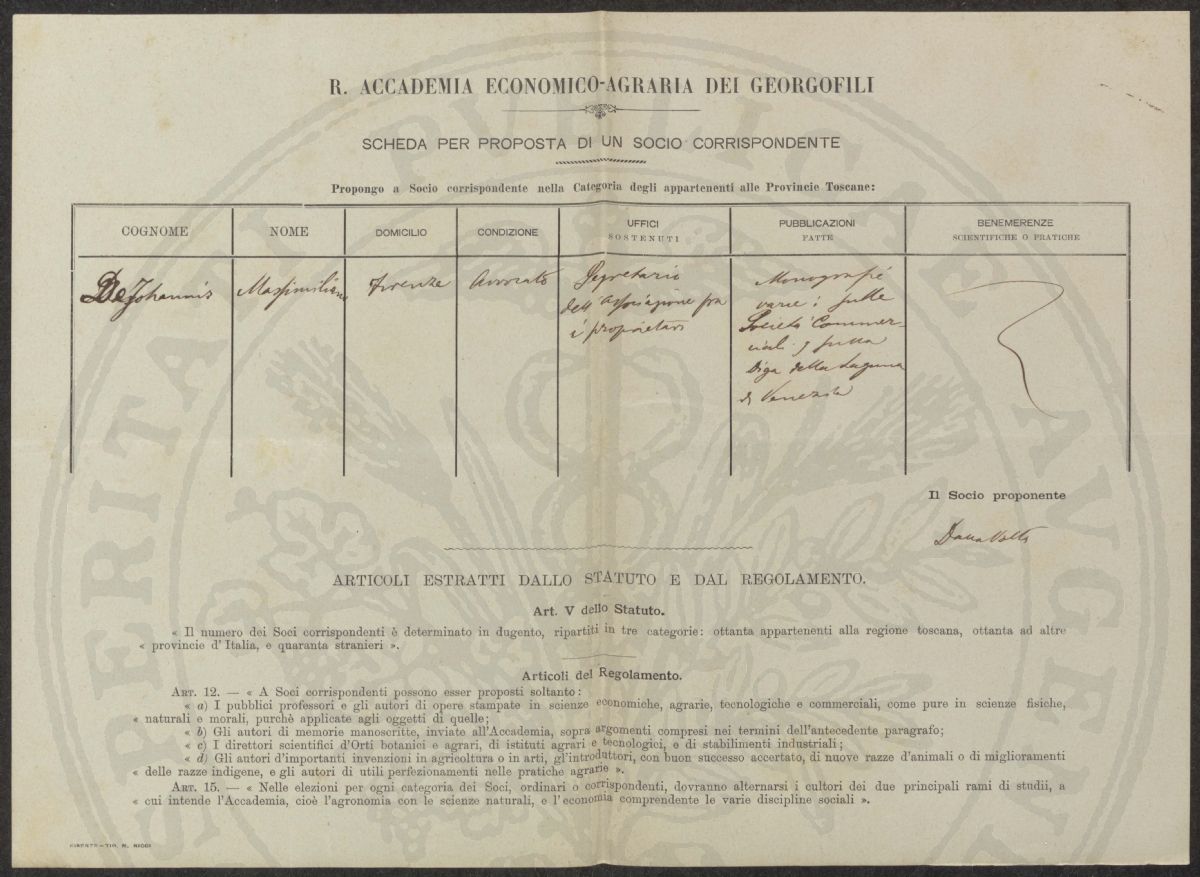 R. ACCADEMIA ECONOMICO-AGRARIA DEI GEORGOFILI
SCHEDA PER PROPOSTA DI UN SOCIO CORRISPONDENTE
Propongo a Socio corrispondente nella Categoria degli appartenenti alle Provincie Toscane:
COGNOME
NOME
DOMICILIO
CONDIZIONE
UFFICI
SOSTENUTI
PUBBLICAZIONI
FATTE
BENEMERENZE
SCIENTIFICHE O PRATICHE
De Johannis
Massimiliano
Firenze
Avvocato
Segretario
dell'Associazione fra
i proprietari
Monografie
varie: sulle
Società Commer-
ciali; sulla
Diga della Laguna
di Venezia
Il Socio proponente
Dalla Volta
ARTICOLI ESTRATTI DALLO STATUTO E DAL REGOLAMENTO.
Art. V dello Statuto.
« Il numero dei Soci corrispondenti è determinato in dugento, ripartiti in tre categorie: ottanta appartenenti alla regione toscana, ottanta ad altre
« provincie d'Italia, e quaranta stranieri ».
Articoli del Regolamento.
ART. 12. — « A Soci corrispondenti possono esser proposti soltanto:
« a) I pubblici professori e gli autori di opere stampate in scienze economiche, agrarie, tecnologiche e commerciali, come pure in scienze fisiche,
« naturali e morali, purchè applicate agli oggetti di quelle;
« b) Gli autori di memorie manoscritte, inviate all'Accademia, sopra argomenti compresi nei termini dell'antecedente paragrafo;
« c) I direttori scientifici d'Orti botanici e agrari, di istituti agrari e tecnologici, e di stabilimenti industriali;
« d) Gli autori d'importanti invenzioni in agricoltura o in arti, gl'introduttori, con buon successo accertato, di nuove razze d'animali o di miglioramenti
« delle razze indigene, e gli autori di utili perfezionamenti nelle pratiche agrarie ».
ART. 15. — « Nelle elezioni per ogni categoria dei Soci, ordinari o corrispondenti, dovranno alternarsi i cultori dei due principali rami di studii, a
« cui intende l'Accademia, cioè l'agronomia con le scienze naturali, e l'economia comprendente le varie discipline sociali ».
FIRENZE - TIP. M. RICCI